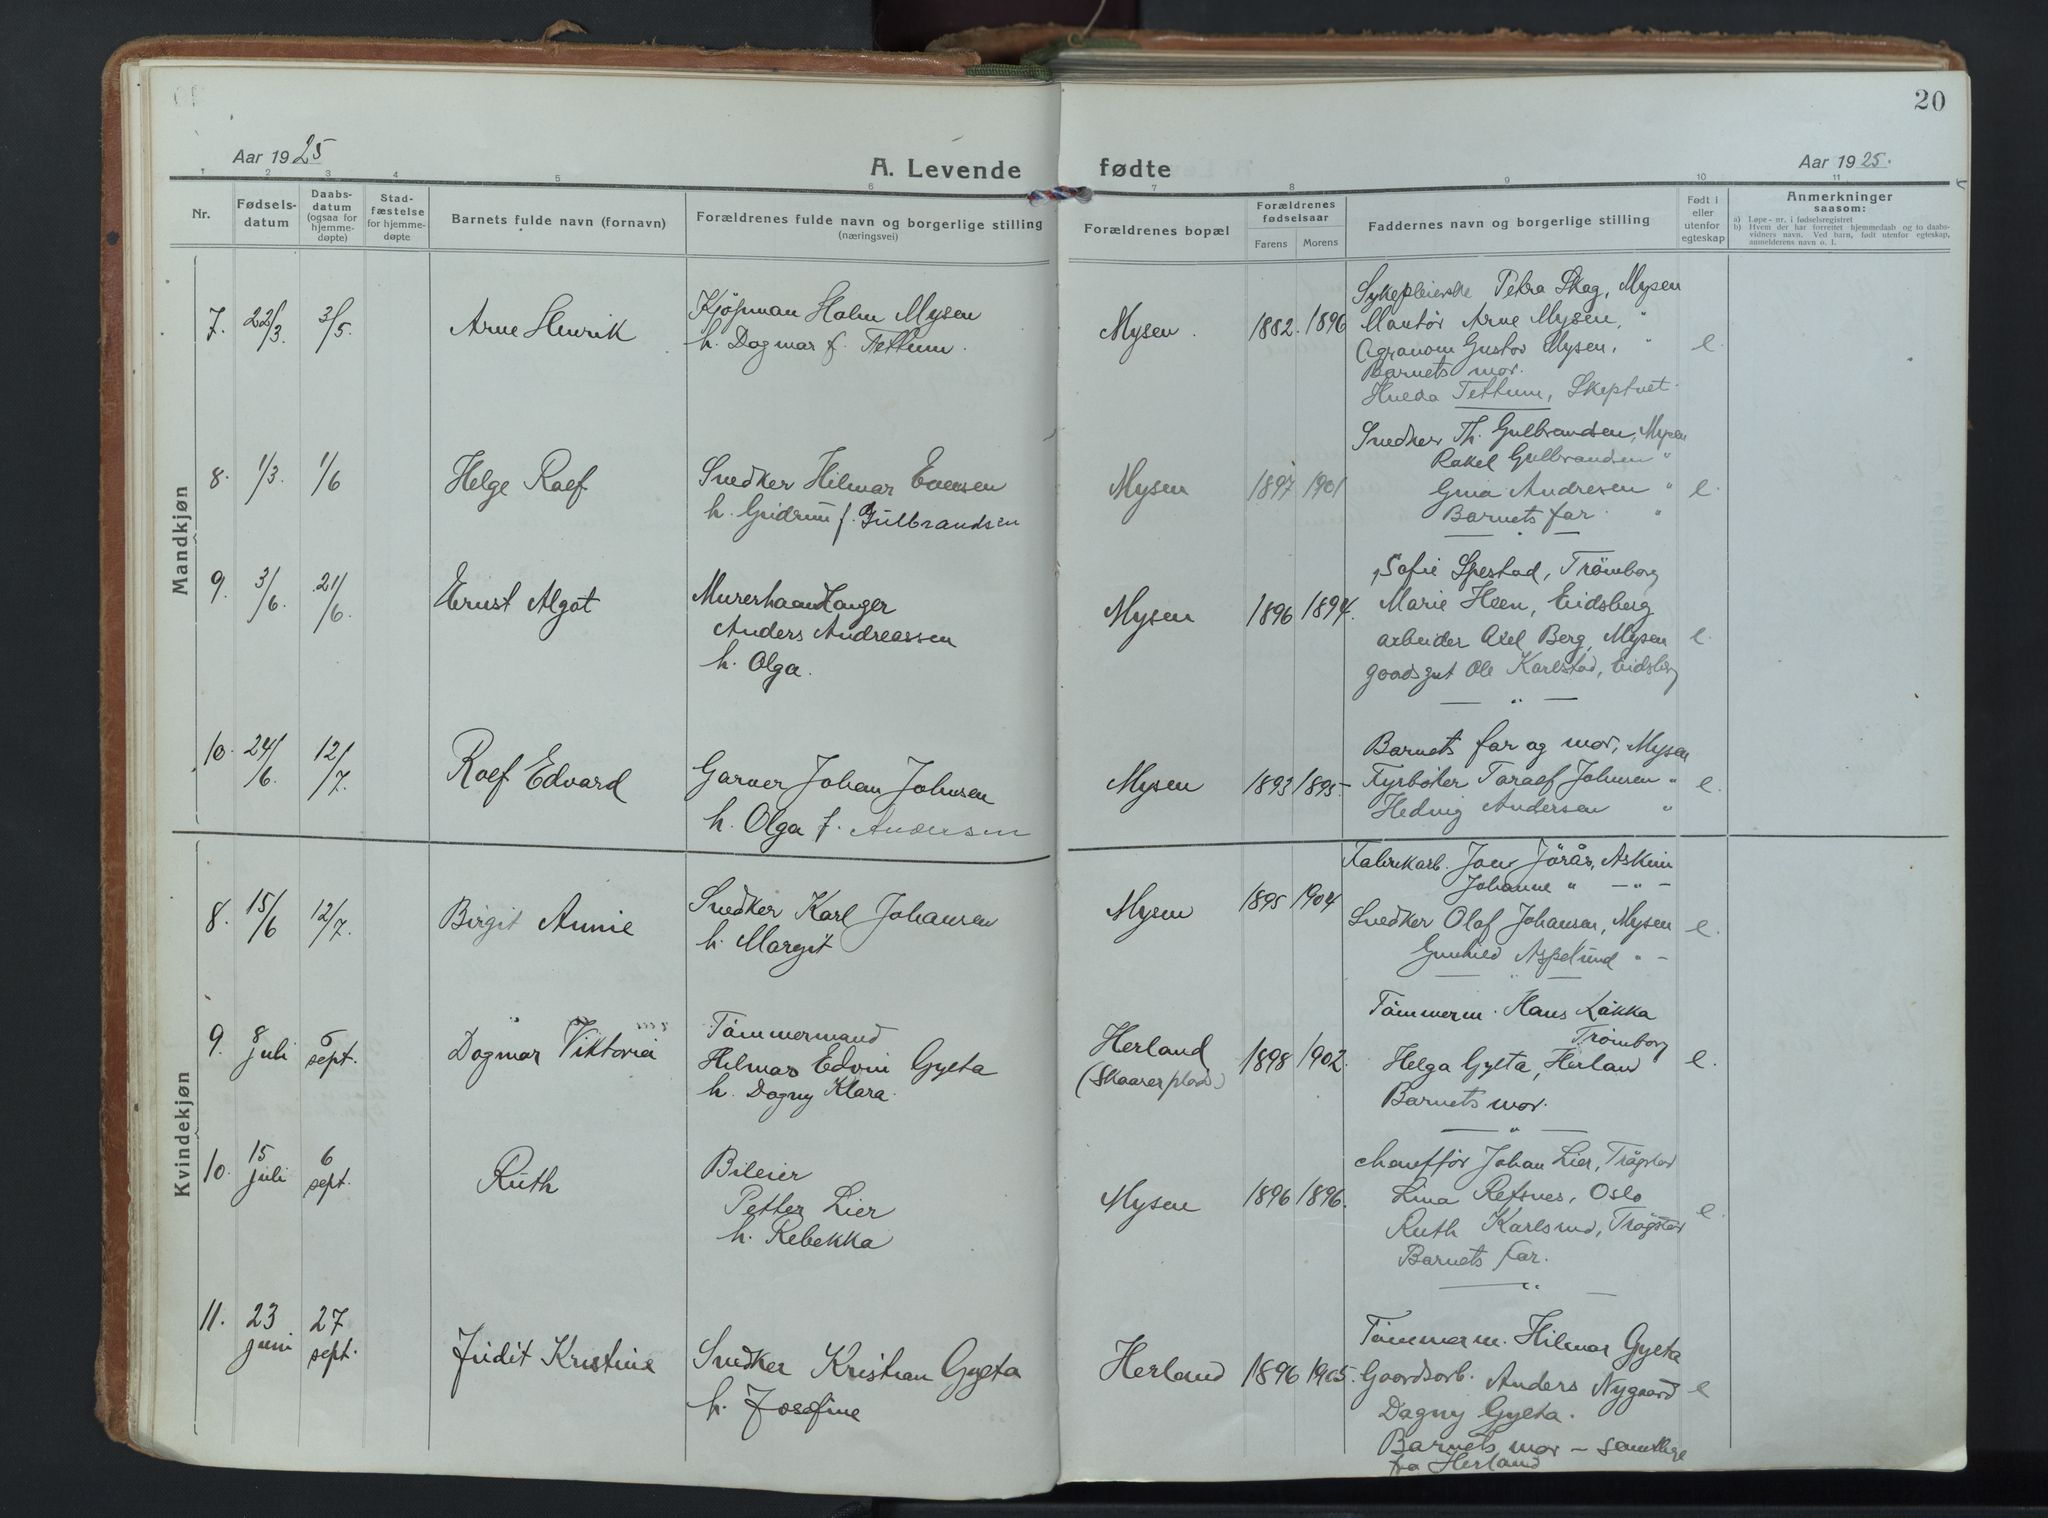 Aar 1925
A. Levende fødte
Aar 1925.
20
1 2 3 4 5 6 7 8 9 10 11
Nr.
Fødsels-
datum
Daabs-
datum
(ogsaa for
hjemme-
døpte)
Stad-
fæstelse
for hjemme-
døpte
Barnets fulde navn (fornavn)
Forældrenes fulde navn og borgerlige stilling
(næringsvei)
Forældrenes bopæl
Forældrenes
fødselsaar
Farens
Morens
Faddernes navn og borgerlige stilling
Født i
eller
utenfor
egteskap
Anmerkninger
saasom:
a) Løpe-nr. i fødselsregistret
b) Hvem der har forrettet hjemmedaab og to daabs-
vidners navn. Ved barn, født utenfor egteskap,
anmelderens navn o. l.
Mandkjøn
7. 22/3. 3/5.
Arne Henrik
Kjøpman Holm Mysen
h. Dagmar f. Tettum.
Mysen.
1882. 1896
Sykepleierske Petra Skog, Mysen
Arne Mysen, "
Agronom Gustov Mysen, "
Barnets mor.
Tettum, Skeptvet.
e.
8. 1/3. 1/6
Helge Rolf
Snedker Hilmar Evensen
h. Gudrun f. Gulbrandsen
Mysen
1897 1901
Snedker Th. Gulbrandsen, Mysen
Rakel Gulbrandsen "
Gina Andresen "
Barnets far. "
e.
9. 3/6. 21/6.
Ernst Algot
Murerhaandlanger
Anders Andreassen
h. Olga.
Mysen
1896 1894.
Sofie Spestad, Trömborg
Marie Heen, Eidsberg
arbeider Axel Berg, Mysen
gaardsgut Ole Karlstad, Eidsberg
e.
10. 24/6. 12/7.
Rolf Edvard
Garver Johan Johnsen
h. Olga f. Andersen
Mysen
1893 1895-
Barnets far og mor, Mysen
Fyrbøter Toralf Johnsen "
Hedvig Andersen "
e.
Kvindekjøn
8. 15/6 12/7.
Birgit Annie
Snedker Karl Johansen
h. Margit
Mysen
1895 1904
Fabrikarb. Jon Jörås, Askim
Johanne " - " -
Snedker Olaf Johansen, Mysen
Gunhild Aspelund " -
e.
9. 8 juli 6 sept.
Dagmar Viktoria
Tömmermand
Hilmar Edvin Gylta
h. Dagny Klara.
Herland
(Skaarerplads)
1898 1902.
Tömmerm. Hans Løkka
Trömborg
Helga Gylta, Herland
Barnets mor.
e.
10. 15 juli 6 sept.
Ruth
Bileier
Petter Lier
h. Rebekka
Mysen
1896 1896.
chauffør Johan Lier, Trögstad
Lina Refsnes, Oslo
Ruth Karlsrud, Trögstad
Barnets far.
e.
11. 23 juni 27 sept.
Judit Kristine
Snedker Kristian Gylta
h. Josefine
Herland
1896 1905.
Tömmerm. Hilmar Gylta
Gaardsarb. Anders Nygaard
Dagny Gylta.
Barnets mor - samtlige
fra Herland
e